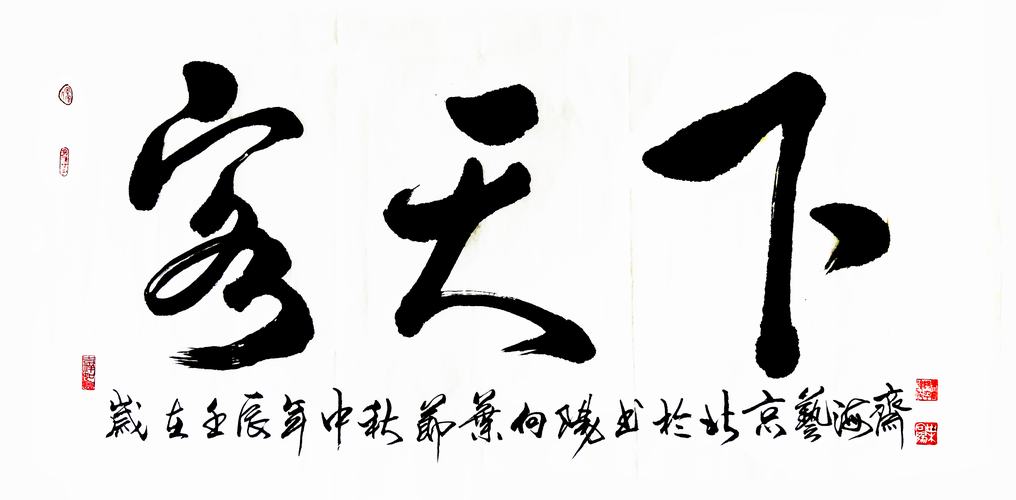 客天下
歲在壬辰年中秋節葉向陽書於北京藝海齋